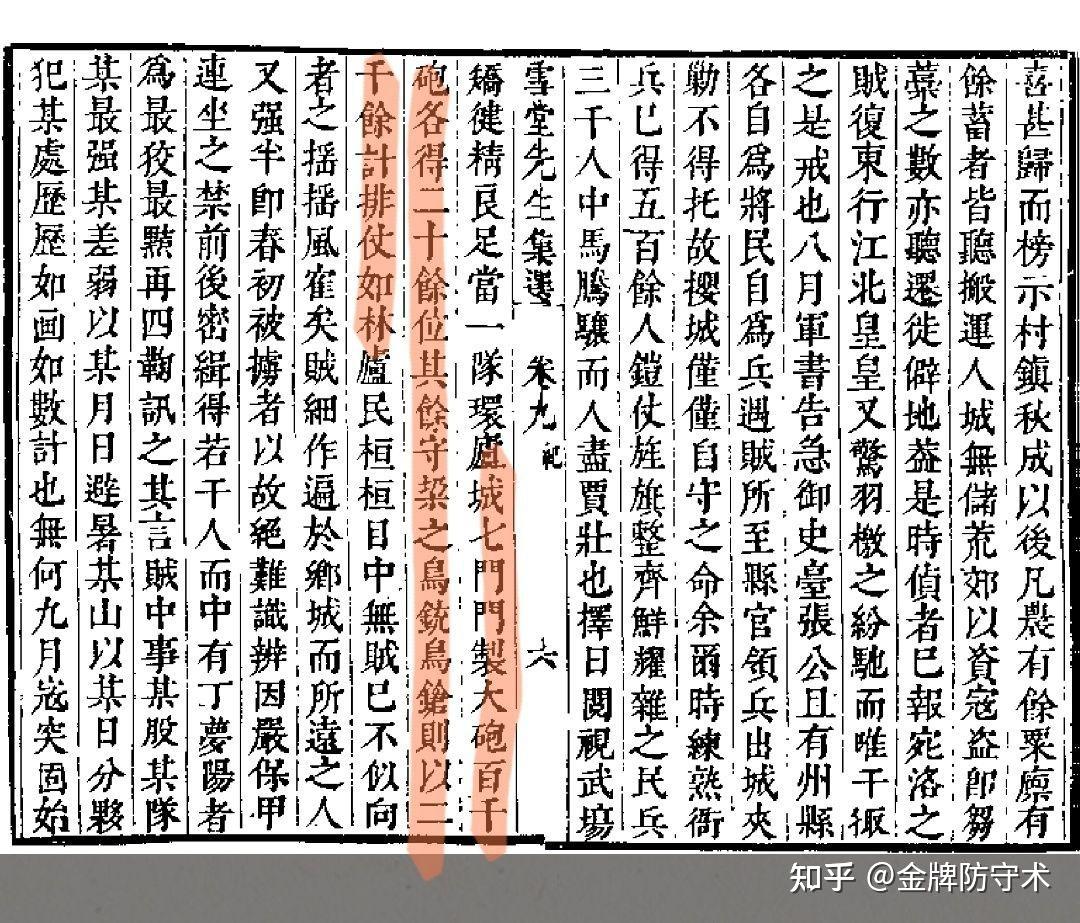 喜甚歸而榜示村鎮秋成以後凡農有餘粟廪有
餘蓄者皆聽搬運入城無儲荒郊以資寇盜即芻
藁之數亦聽遷徙僻地葢是時偵者巳報宛洛之
賊復東行江北皇皇又驚羽檄之紛馳而唯干掫
之是戒也八月軍書告急御史臺張公且有州縣
各自爲將民自爲兵遇賊所至縣官領兵出城夾
勦不得托故攖城僅僅自守之命余爾時練熟衙
兵巳得五百餘人鎧仗旌旗整齊鮮耀雜之民兵
三千人中馬騰驤而人盡賈壯也擇日閱視武場
雪堂先生集選 卷九 記 六
矯健精良足當一隊環廬城七門門製大砲百千
砲各得二十餘位其餘守梁之鳥銃鳥鎗則以二
千餘計排仗如林廬民桓桓目中無賊巳不似向
者之揺揺風寉矣賊細作遍於鄉城而所遠之人
又强半即春初被擄者以故絕難識辨因嚴保甲
連坐之禁前後密緝得若干人而中有丁夢陽者
爲最狡最黠再四鞫訊之其言賊中事某股某隊
某最强某差弱以某月日避暑某山以某日分夥
犯某處歷歷如画如數計也無何九月寇突固始
知乎 @金牌防守术